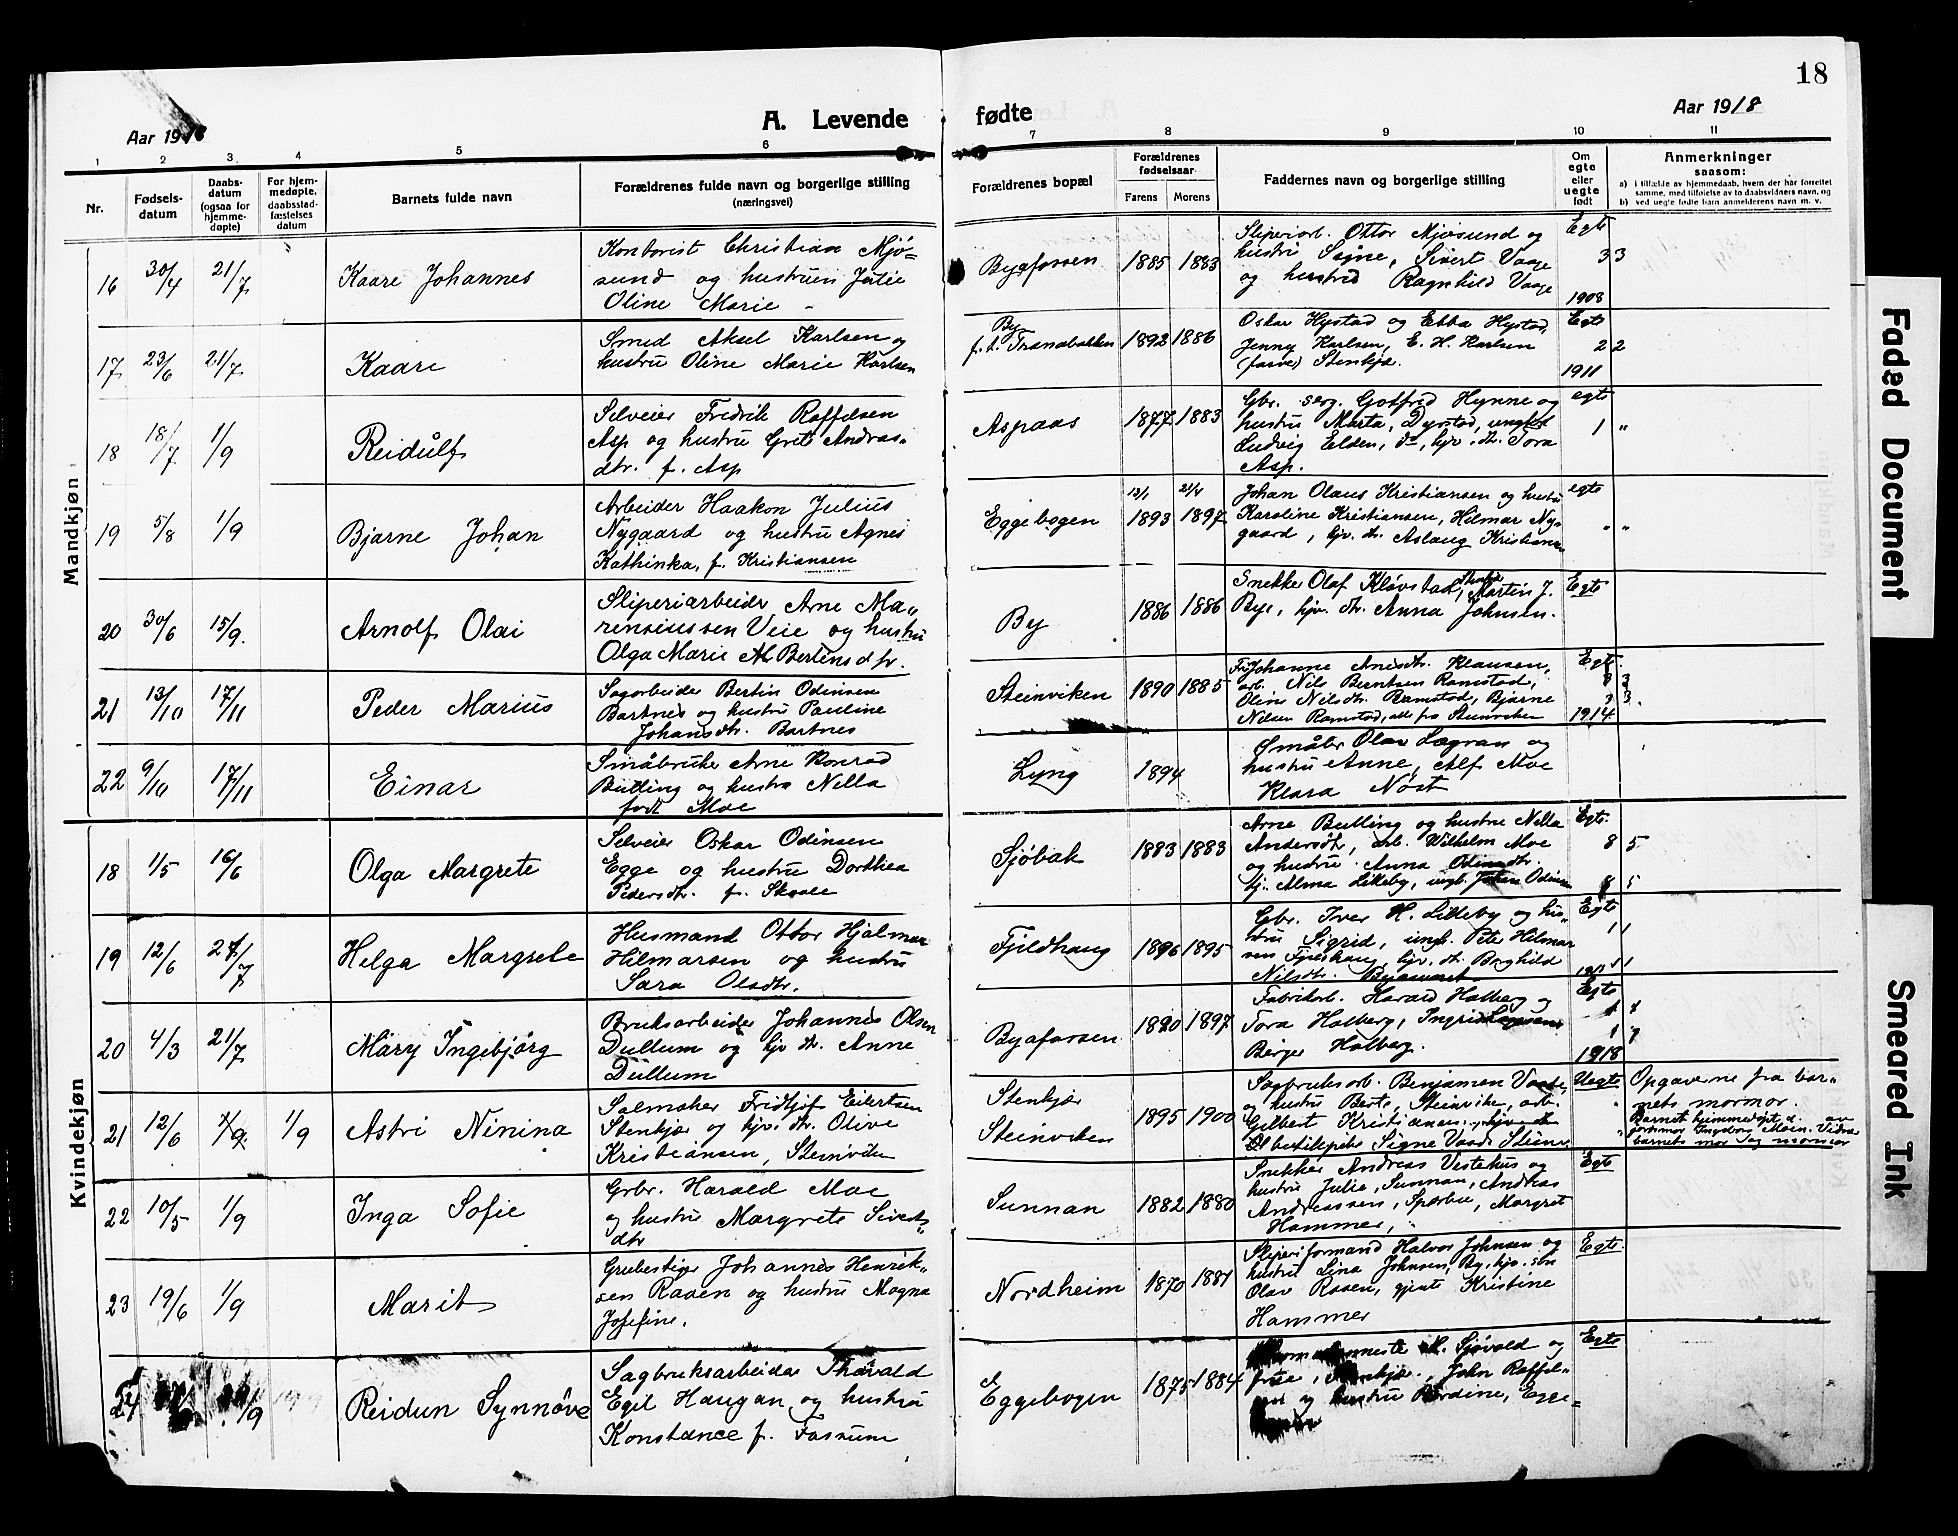 18
Aar 1918
A. Levende
fødte
Aar 1918
1 2 3 4 5 6
7 8 9 10 11
Nr.
Fødsels-
datum
Daabs-
datum
(ogsaa for
hjemme-
døpte)
For hjem-
medøpte,
daabsstad-
fæstelses
datum
Barnets fulde navn
Forældrenes fulde navn og borgerlige stilling
(næringsvei)
Forældrenes bopæl
Forældrenes
fødselsaar
Farens Morens
Faddernes navn og borgerlige stilling
Om
egte
eller
uegte
født
Anmerkninger
saasom:
a) i tilfælde av hjemmedaab, hvem der har forrettet
samme, med tilføielse av to daabsvidners navn, og
b) ved uegte fødte barn anmelderens navn m. v.
Mandkjøn
16 30/4 21/7 Kaare Johannes
Kontorist Christian Mjö-
sund og hustruen Julie
Oline Marie
Byafossen 1885 1883
Sliperiarb. Ottar Mjøsund og
hustru Signe, Sivert Vaage
og hustru Ragnhild Vaage
Egte
3 3
1908
17 23/6 21/7 Kaare
Smed Aksel Karlsen og
hustru Oline Marie Karlsen
By
f. t. Tranabakken 1892 1886
Oskar Hystad og Ebba Hystad,
Jenny Karlsen, E. H. Karlsen
Stenkjær.
Egte
2 2
1911
18 18/7 1/9 Reidulf
Selveier Fredrik Roffelsen
Asp og hustru Grete Andreas-
dtr. f. Asp
Aspaas 1877 1883
Gbr. serg. Gotfred Hynne og
hustru Marta, Dyrstad, ungkar
Ludvig Elden, do, hjv. dtr. Tora
Asp.
egte
1 "
19 5/8 1/9 Bjarne Johan
Arbeider Haakon Julius
Nygaard og hustru Agnes
Kathinka, f. Kristiansen
Eggebogen 12/1 1893 21/4 1897
Johan Olaus Kristiansen og hustru
Karoline Kristiansen, Hilmar Ny-
gaard, hjv. dtr. Aslaug Kristiansen
egte
" "
20 30/6 15/9. Arnolf Olai
Sliperiarbeider Arne Ma-
rensiussen Veie og hustru
Olga Marie M Bertinsdtr.
By 1886 1886
Snekker Olaf Kløvstad, Martin J.
Bye, hjv. dtr. Anna Johnsen.
Egte
21 13/10 17/11 Peder Marius
Sagarbeider Bertin Odinsen
Bartnes og hustru Pauline
Johansdtr. Bartnes
Steinviken 1890 1885
Fru Johanne Arnesdtr. Klausen,
arb. Nils Berntsen Ramstad,
Oline Nilsdtr. Ramstad, Bjarne
Nilsen Ramstad, alle fra Steinviken
Egte.
3 3.
1914
22 9/10 17/11 Einar
Småbruker Arne Konrad
Bulling og hustru Nella
født Moe
Lyng 1894
Småbr Olav Lægran og
hustru Anne, Alf Moe
Klara Nøst
Kvindekjøn
18 1/5 16/6 Olga Margrete
Selveier Oskar Odinsen
Egge og hustru Dorthea
Pedersdtr. f. Skaale
Sjöbak 1883 1883
Arne Bulling og hustru Nella
Andersdtr, arb. Wilhelm Moe
og hustru Anna Odinsdtr.
hj. Alma Lilleby, ungk. Johan Odinsen
Egte.
8 5
8 5
19 12/6 27/7 Helga Margrete
Husmand Ottar Hjalmar
Hilmarsen og hustru
Sara Olsdtr.
Fjeldhaug 1896 1895
Gbr. Iver H. Lilleby og hus-
tru Sigrid, ungk. Peter Hilmar
sen Fjeldhaug, hjv. dtr. Borghild
Nilsdtr.
Egte
1 1
1 1
20 4/3 21/7 Mary Ingebjørg
Bruksarbeider Johannes Olsen
Dullum og hjv dtr. Anne
Dullum
Byafossen 1890 1897
Fabrikarb. Harald Holberg og
Tora Holberg, Ingrid
Birger Holberg.
Egte
1
1918
21 12/6 1/9. 1/9 Astri Ninina
Salmaker Fridtjof Eilertsen
Stenkjær og hjv. dtr. Olive
Kristiansen, Steinviken
Stenkjær
Steinviken 1895 1900
Sagbruksarb. Benjamin Vaade,
og hustru Berte, Steinviken, arb.
Gilbert Kristiansen,
Signe Vaade Steinv.
Uegte
Opgaverne fra bar-
nets mormor.
Barnet hjemmedøpt d. av
jordmor Ingeborg Moen. Vidner
barnets mor og mormor
22 10/5 1/9 Inga Sofie
Grbr. Harald Moe
og hustru Margrete Siverts-
dtr
Sunnan 1882 1880
Snekker Andreas Vestehus og
hustru Julie, Sunnan, Andreas
Andreassen, Sparbu, Margret
Hammer,
Egte
23 19/6 1/9 Marit
Grubestiger Johannes Henrik-
sen Raaen og hustru Magna
Josefine.
Nordheim 1870 1881
Sliperiformand Halvor Johnsen og
hustru Lina Johnsen, By, hjv. søn
Olav Raaen, pjente Kristine
Hammer
Egte.
24 /9 Reidun Synnöve
Sagbruksarbeider Thorvald
Egil Haugan og hustru
Konstance f. Fossum
Eggebogen 1875 1884
Sjövold og
frue, Stenkjær, John Roffel-
sen og hustru Nordine, Egge-
Egte
Faded Document
Smeared Ink